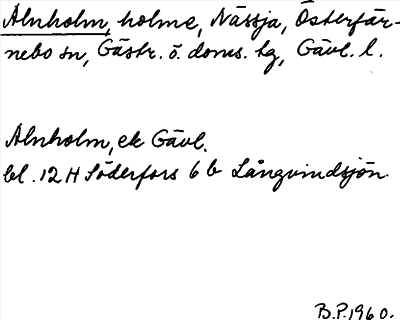 Alnholm, holme, Nässja, Österfär-
nebo sn, Gästr. ö. doms. hg, Gävl. l.
Alnholm, ek Gävl.
bl. 12 H Söderfors 6 b Långvindsjön.
B.P. 1960.